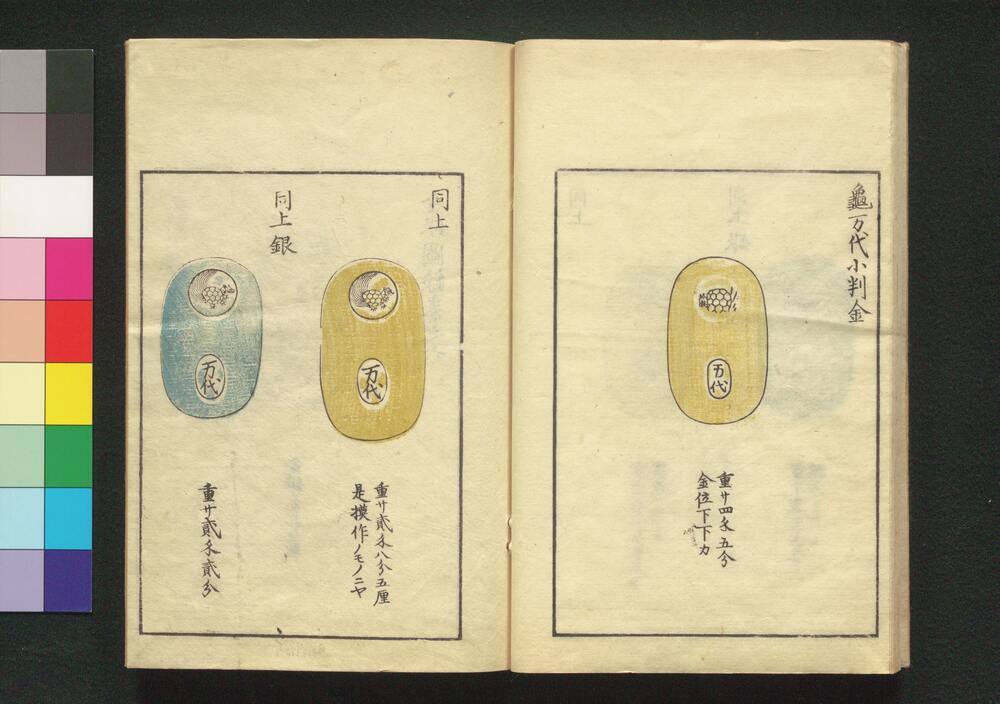 龜万代小判金
万代
重廿四匁五分
金位下下カ
同上
万代
重廿貳匁八分五厘
是摸作ノモノニヤ
同上銀
万代
重廿貳匁貳分